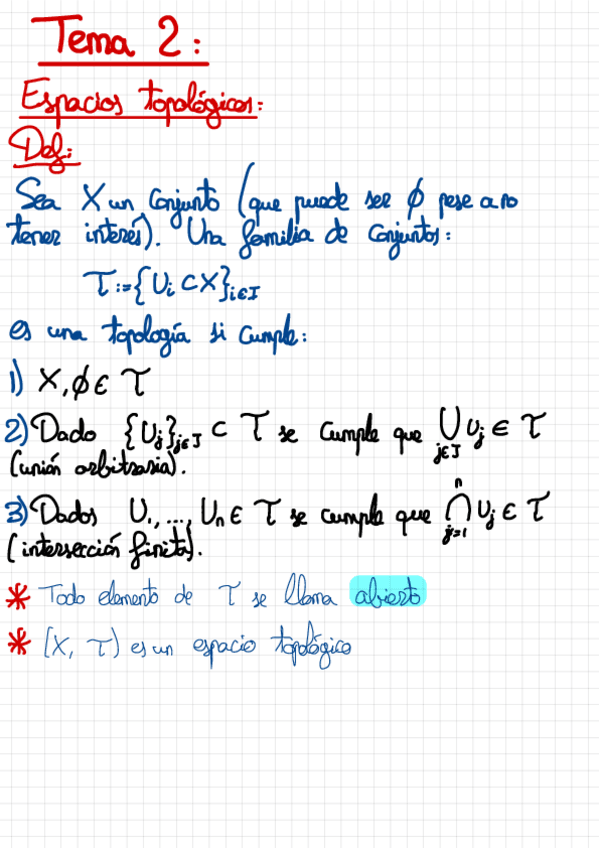 Tema 2:
Espacios topológicos:
Def:
Sea X un conjunto (que puede ser ϕ pese a no
tener interés). Una familia de conjuntos:
τ:={U_i ⊂ X}_{i∈I}
es una topología si cumple:
1) X, ϕ ∈ τ
2) Dado {U_j}_{j∈J} ⊂ τ se cumple que ⋃_{j∈J} U_j ∈ τ
(unión arbitraria).
3) Dados U_1, ..., U_n ∈ τ se cumple que ⋂_{j=1}^{n} U_j ∈ τ
(intersección finita).
* Todo elemento de τ se llama abierto
* (X, τ) es un espacio topológico